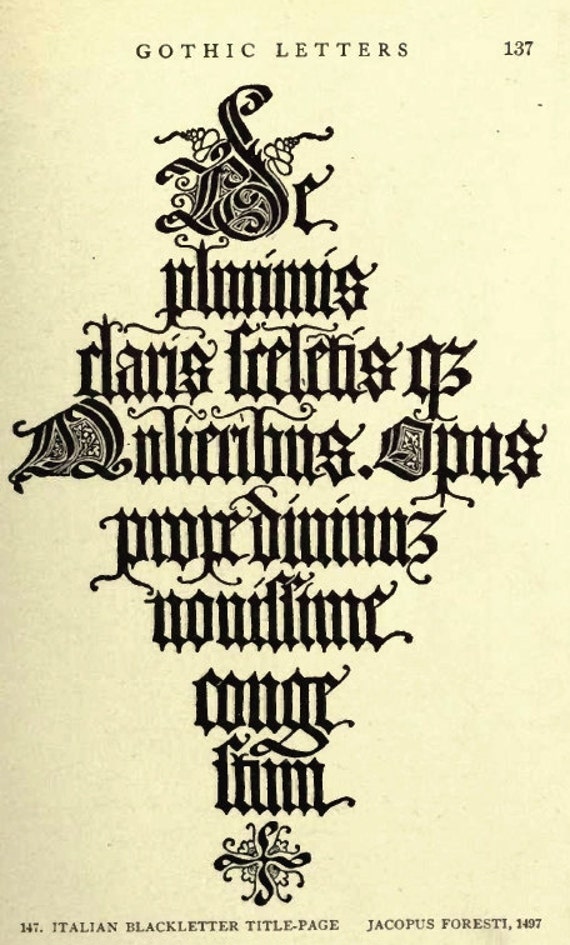 GOTHIC LETTERS 137
De
plurimis
claris ſceletis qꝫ
Mulieribus. Opus
prope diuinuꝫ
nouiſſime
conge
ſtum
147. ITALIAN BLACKLETTER TITLE-PAGE JACOPUS FORESTI, 1497